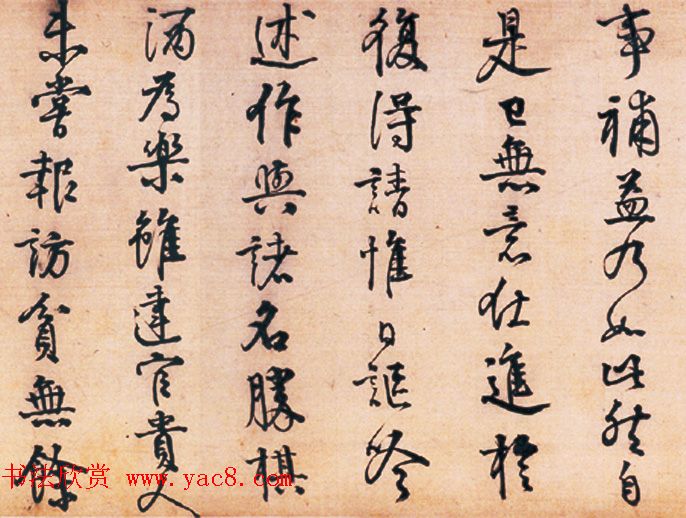 事補益乃如此然自
是已無意仕進
復得請惟日謳吟
述作與諸名勝棋
酒為樂雖達官貴人
未嘗報訪貧無餘
书法欣赏 www.yac8.com